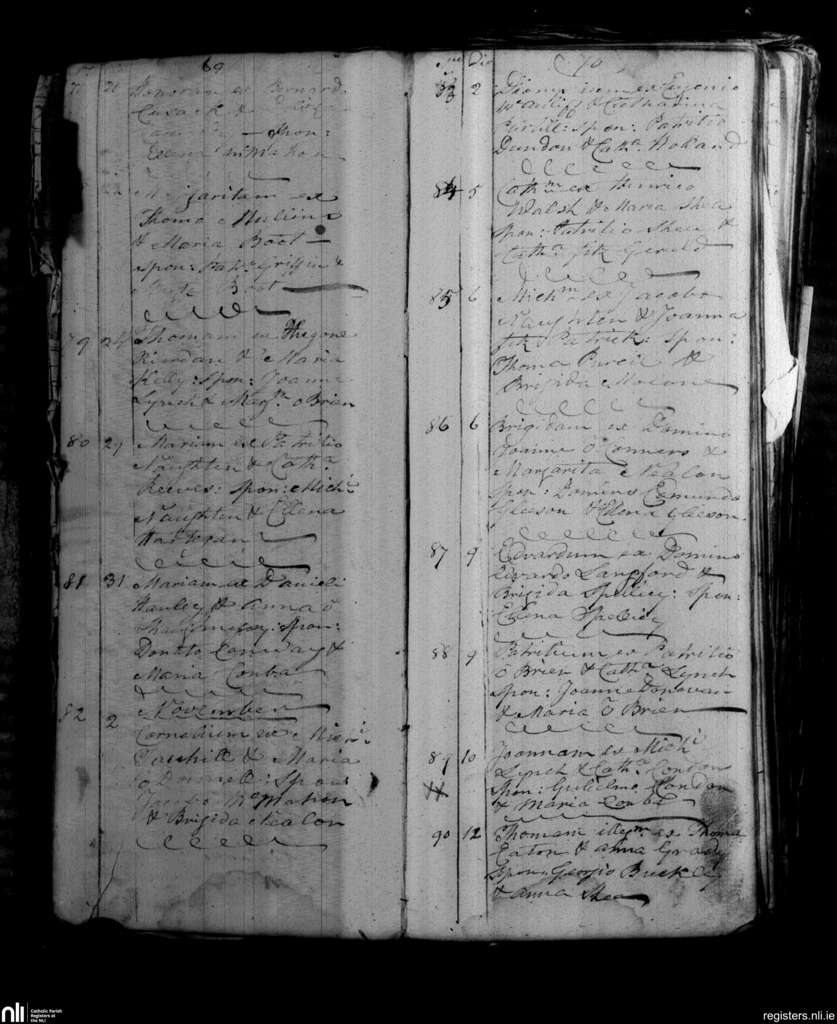 69
21 Honoram ex Bernard
Cusack &
Spon:
Ellena
Margaritam ex
Thoma
& Maria Boot
Spon: Patr: Griffin &
Boot
79 24 Thomam ex
Riordan & Maria
Kelly: Spon: Joanne
Lynch & Marg: O Brien
80 29 Mariam ex Patritio
Naughten & Cath:
Reeves: Spon: Mich:
Naughten & Ellena
Hartigan
81 31 Mariam ex Daniele
Hanley & Anna O
Spon:
Donato Conway &
Maria
November
82 2 Cornelium ex
& Maria
O Donnell: Spon:
Jacobo McMahon
& Brigida Nealon
70
No Die
83 2 Dionysium ex Eugenio
& Catharina
Spon: Patritio
Dundon & Cath: Holland
84 5 Cath:m ex Henrico
Walsh & Maria Shee
Spon: Patritio Shee &
Cath:a fitz Gerald
85 6 Mich:m ex Jacobo
Naughten & Joanna
fitz Patrick: Spon:
Thoma Purcil &
Brigida
86 6 Brigidam ex Domino
Joanne O Conners &
Margarita Nealon
Spon: Domino Edmundo
Gleeson & Ellena Gleeson
87 9 Edvardum ex Domino
Edvardo Langford &
Brigida Spellicy: Spon:
Ellena Spellicy
88 9 Patritium ex Patritio
O Brien & Cath:a Lynch
Spon: Joanne Donovan
& Maria O Brien
89 10 Joannam ex Mich:
Lynch & Cath:a Condon
Spon: Gulielmo Condon
& Maria
90 12 Thomam illeg:m ex Thoma
Eaton & Anna Grady
Spon: Georgio Buckley
& Anna Shea
nli
Catholic Parish
Registers at
the NLI
registers.nli.ie